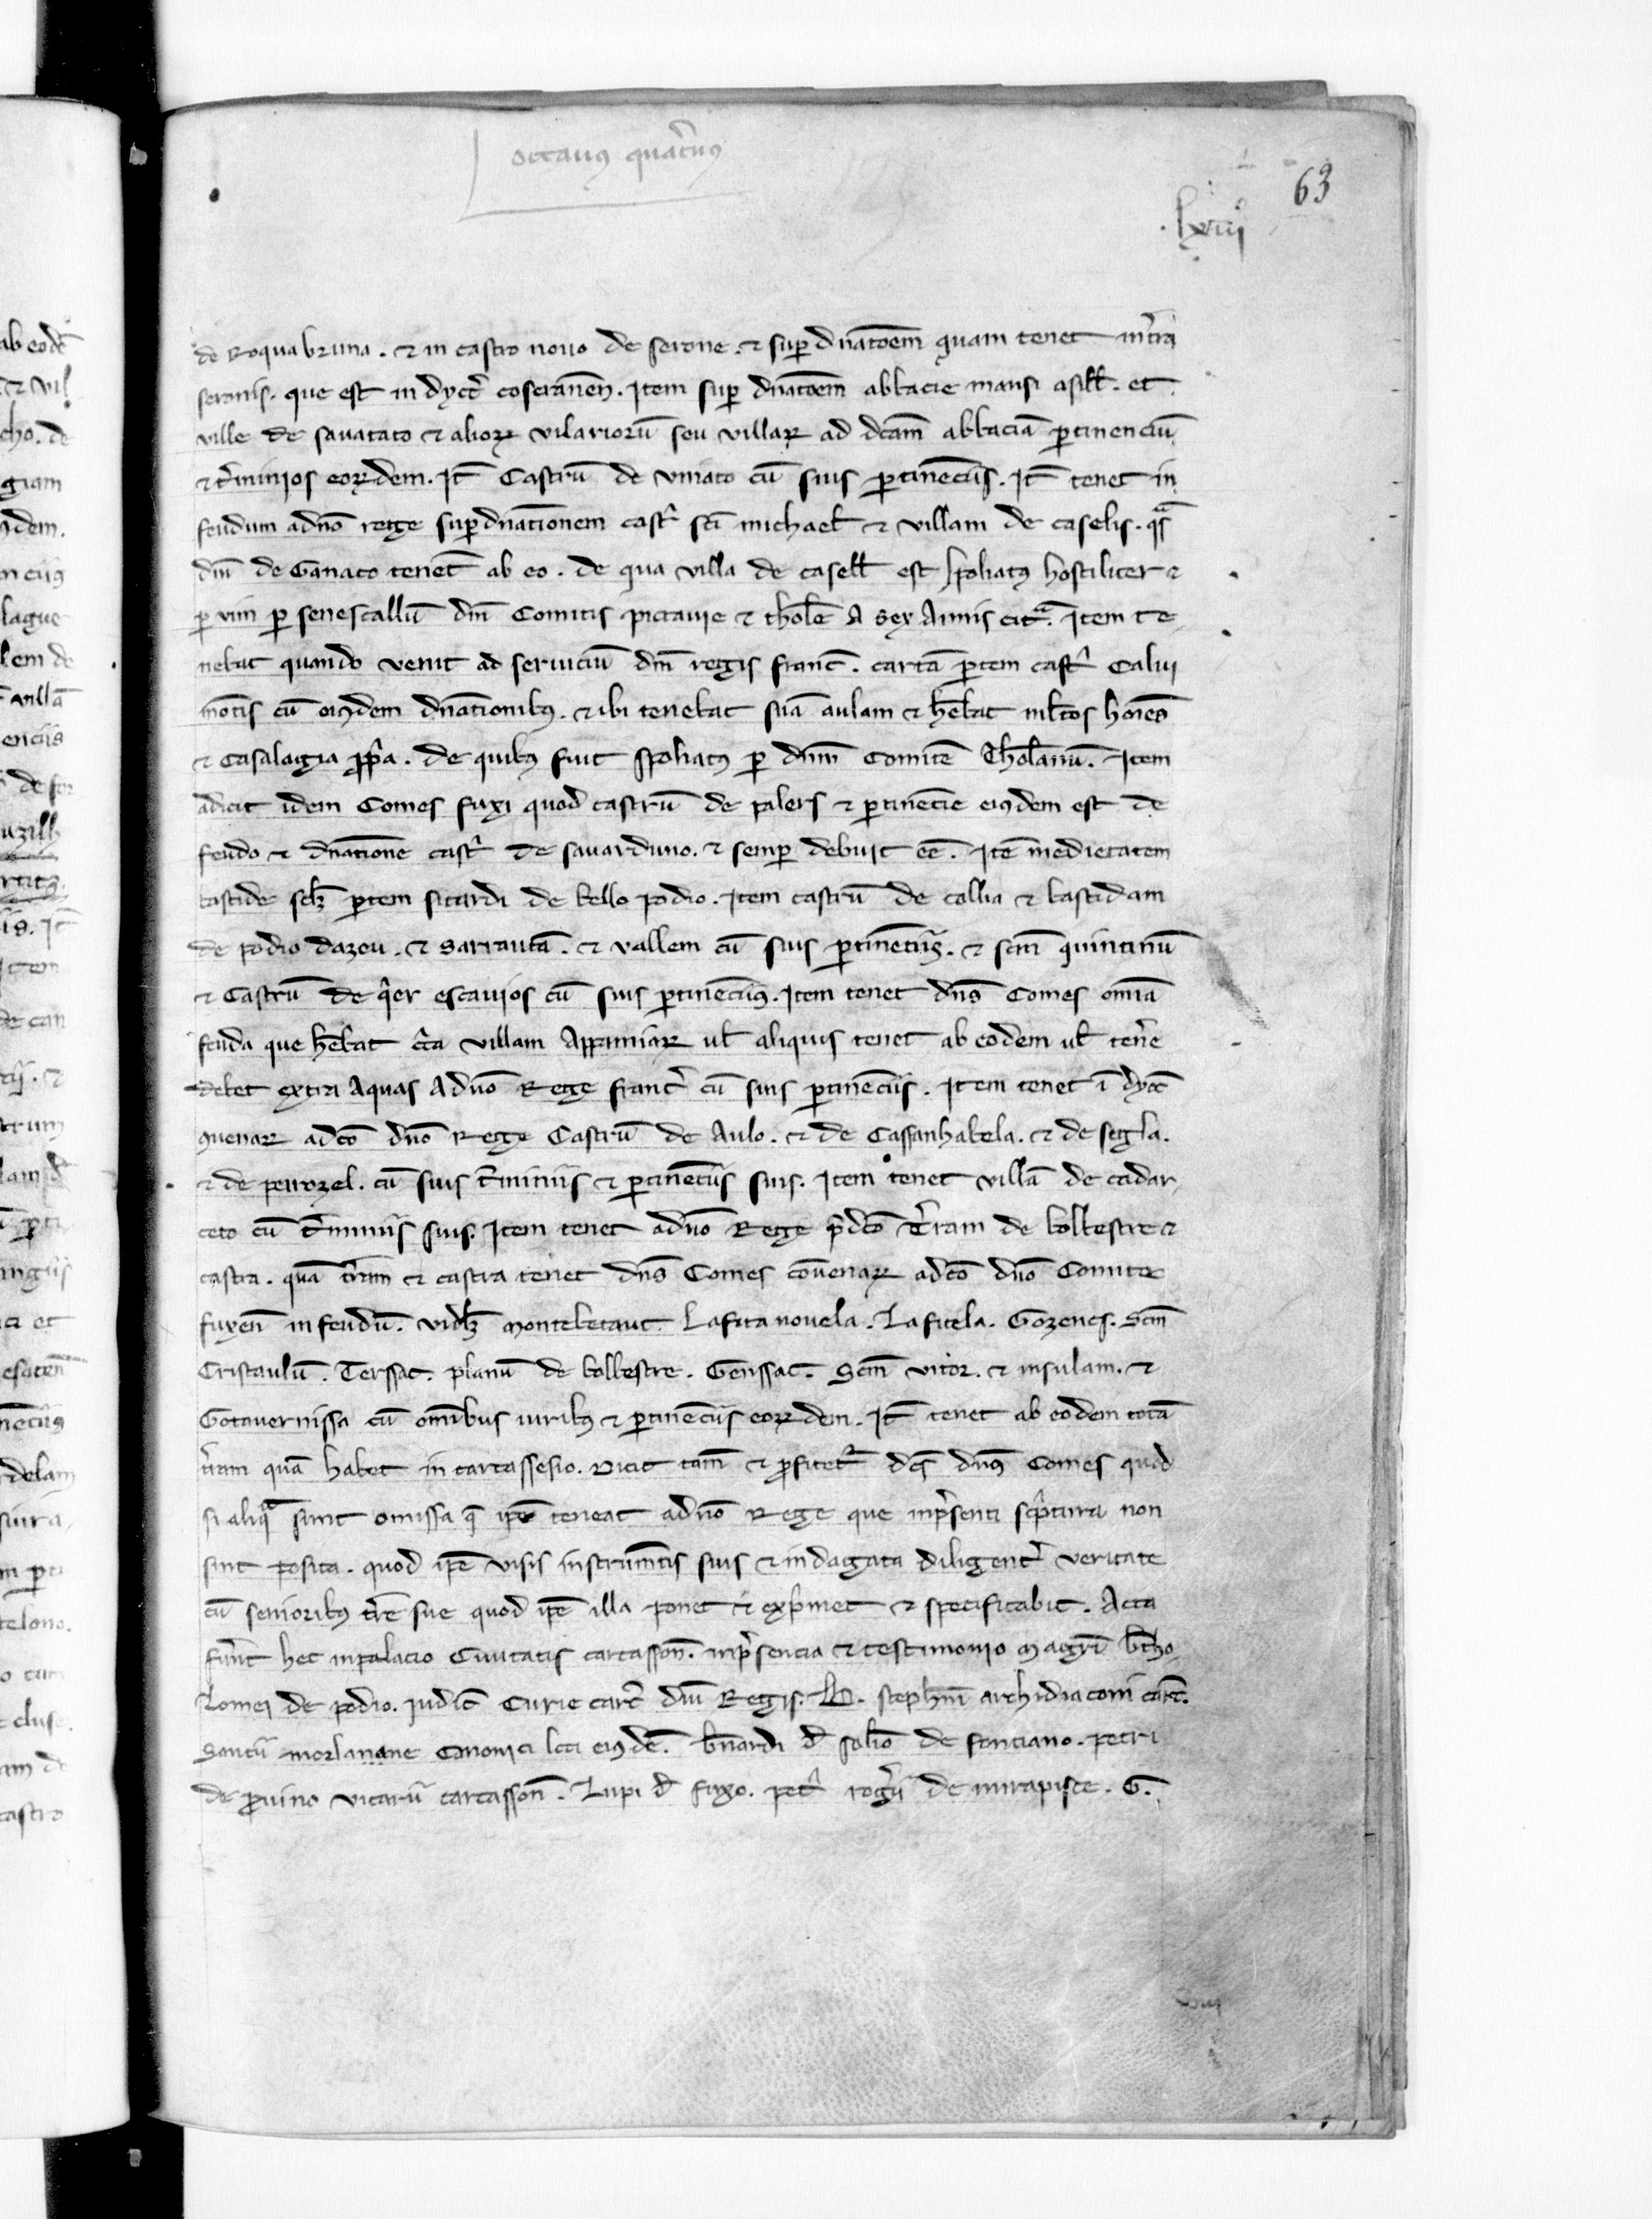 octauꝰ quat̃nꝰ
63
.lxiiij.
de Roquabruna . ⁊ in castro nouo de serone . ⁊ suꝑ dn̄atōem quam tenet in t̃ra
seronis . que est in dyoc̃ coseranen̄ . Item suꝑ dn̄atōem abbacie mansi asill̃ . et
ville de sauatato ⁊ alioꝝ vilarioꝝ seu villaꝝ ad dc̄am abbaciā ꝑtinenciū
⁊ t̃minios eoꝝdem . It̃ Castrū de vniaco cū suis ꝑtinēciis . It̃ tenet in
feudum a dn̄o rege suꝑ dn̄ationem cast̃ sc̄i michael̃ ⁊ villam de caselis .
dn̄i de Ganaco tenet ab eo . de qua villa de casell̃ est spoliatꝰ hostiliter ⁊
ꝑ vim ꝑ senescallū dn̄i Comitis pictauie ⁊ thol̃e A sex Annis cit̃ . Item te
nebat quando venit ad seruiciū dn̄i regis franc̃ . cartā ꝑtem cast̃ Calui
mōtis cū eiꝰdem dn̄ationibꝰ . ⁊ ibi tenebat suā aulam ⁊ hēbat ml̃tos hoīes
⁊ Casalagia ꝓp̃a . de quibꝰ fuit spoliatꝰ ꝑ dn̄m Comitē Thol̃anū . Item
adicit idem Comes fuxi quod castrū de palers ⁊ ꝑtinencie eiꝰdem est de
feudo ⁊ dn̄atione cast̃ de sauarduno . ⁊ semꝑ debuit eē . Itē medietatem
bastide scil̃ꝫ ꝑtem sicardi de bello podio . Item castrū de calha ⁊ bastidam
de podio dazou . ⁊ sarrautā . ⁊ vallem cū suis ꝑtinēciis . ⁊ sc̄m quintinū
⁊ Castrū de q̃er escauios cū suis ꝑtinēciis . Item tenet dn̄s Comes omīa
feuda que hēbat cc̃a villam Appamiaꝝ ul̃ aliquis tenet ab eodem ul̃ ten̄e
debet extra Aquas A dn̄o Rege franc̃ cū suis ꝑtinēciis . Item tenet ī dyoc̃
ꝯuenaꝝ a dc̄o dn̄o Rege Castrū de Aulo . ⁊ de Cassanhabela . ⁊ de segla .
⁊ de peirozel . cū suis t̃miniis ⁊ ꝑtinēciis suis . Item tenet villā de cadar
ceto cū t̃miniis suis . Item tenet a dn̄o Rege p̃dc̄o t̃ram de bolbestre ⁊
castra . quā t̃ram ⁊ castra tenet dn̄s Comes cōuenaꝝ a dc̄o dn̄o Comite
fuxen̄ in feudū . vidl̃ꝫ montebetaut . Lafita nouela . Lafitela . Gozenes . Sc̄m
Cristaulū . Terssac . planū de bolbestre . Genssac . Sc̄m vitor . ⁊ insulam . ⁊
Gotauernissa cū om̄ibus iuribꝰ ⁊ ꝑtinēciis eoꝝdem . It̃ tenet ab eodem totā
t̃ram quā habet in carcassesio . Dicit tam̄ ⁊ ꝓfitet̃ dc̄s dn̄s Comes quod
si aliq̃ sunt omissa q̃ ip̄e teneat a dn̄o Rege que in p̃senti sc̃ptura non
sint posita . quod ip̄e visis instrum̄tis suis ⁊ indagata diligent̃ veritate
cū senioribꝰ t̃re sue quod ip̄e illa ponet ⁊ exp̃met ⁊ specificabit . Acta
fūnt hec in palacio Ciuitatis carcasson̄ . in p̃sencia ⁊ testimonio magr̃i b̃tho
lomei de podio . Judic̃ Curie carc̃ dn̄i Regis . B . steph̃ni archidiaconi carc̃ .
Sancii morlanane Canonici loci eiꝰdē . b̃nardi d̃ solio de fonciano . petri
de ꝓuino vicarii carcasson̄ . Lupi d̃ fuxo . pet̃ rog̃ii de mirapisce . G .